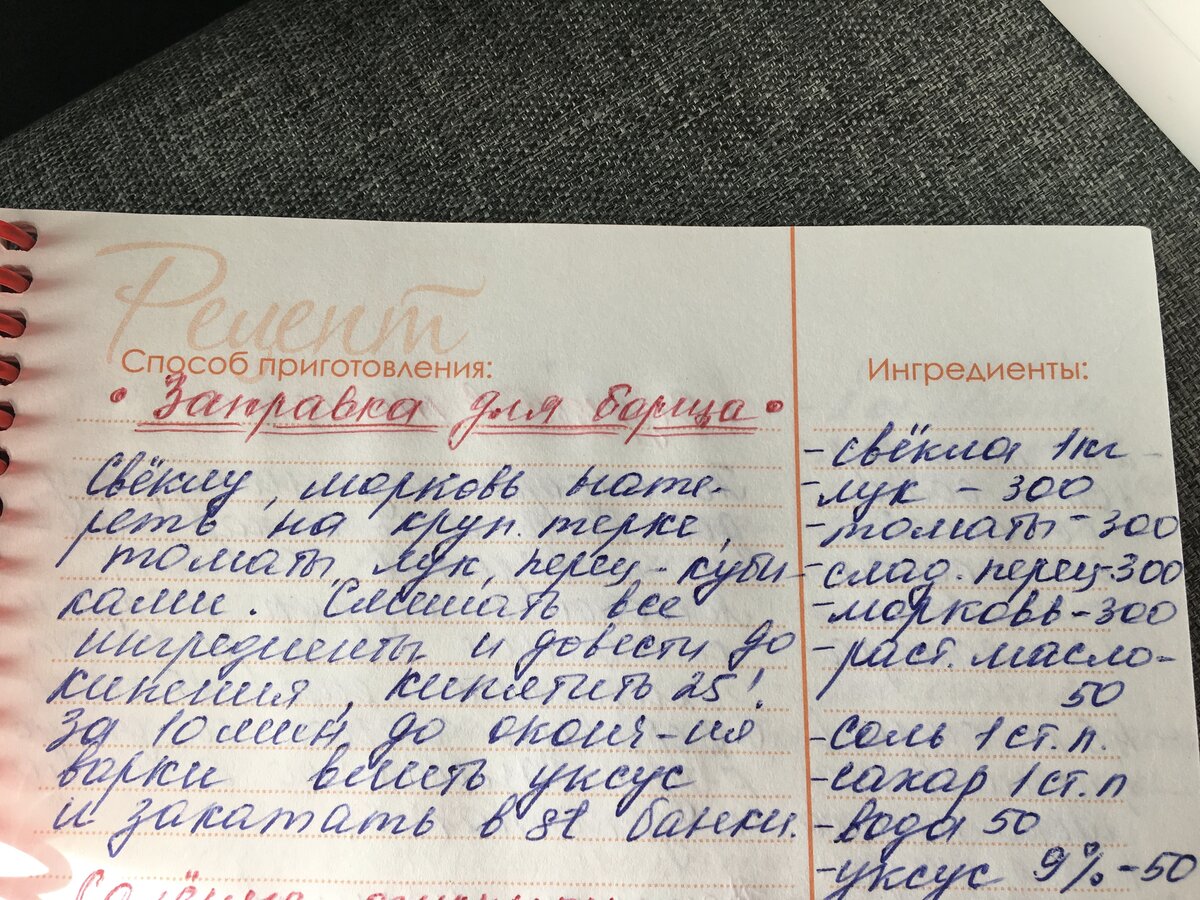 Рецепт
Способ приготовления:
• Заправка для борща •
Свёклу, морковь нате-
реть на круп. терке,
томаты, лук, перец - куби-
ками. Смешать все
ингредиенты и довести до
кипения, кипятить 25'.
За 10 мин до оконч-ия
варки влить уксус
и закатать в st банки.
Ингредиенты:
- свёкла 1кг
- лук - 300
- томаты - 300
- слад. перец - 300
- морковь - 300
- раст. масло -
50
- соль 1 ст. л.
- сахар 1 ст. л
- вода 50
- уксус 9% - 50